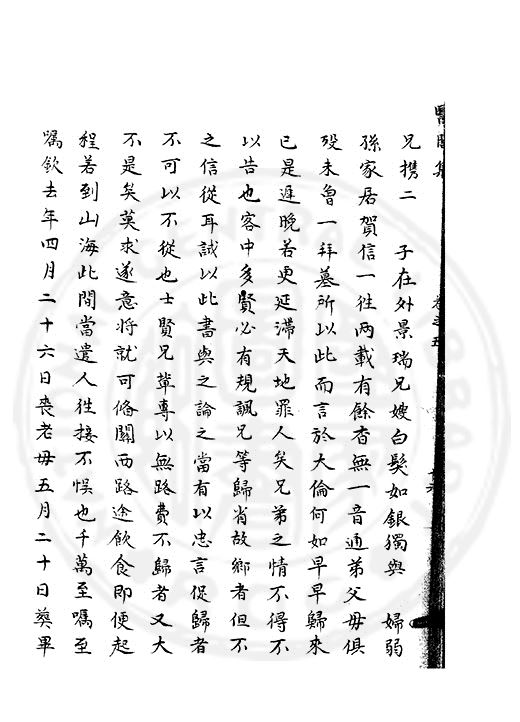 醫閭集
兄携二 子在外景瑞兄嫂白髮如銀獨與 婦弱
孫家居賀信一徃兩載有餘杳無一音通弟父毋俱
歿未曾一拜墓所以此而言於大倫何如早早歸來
已是遲晚若更延滯天地罪人矣兄弟之情不得不
以告也客中多賢必有規諷兄等歸省故鄉者但不
之信從耳誠以此書與之論之當有以忠言促歸者
不可以不從也士賢兄輩專以無路費不歸者又大
不是矣莫求遂意將就可偹關西路途飲食即便起
程若到山海此間當遣人徃接不悮也千萬至囑至
囑欽去年四月二十六日喪老毋五月二十日葬畢